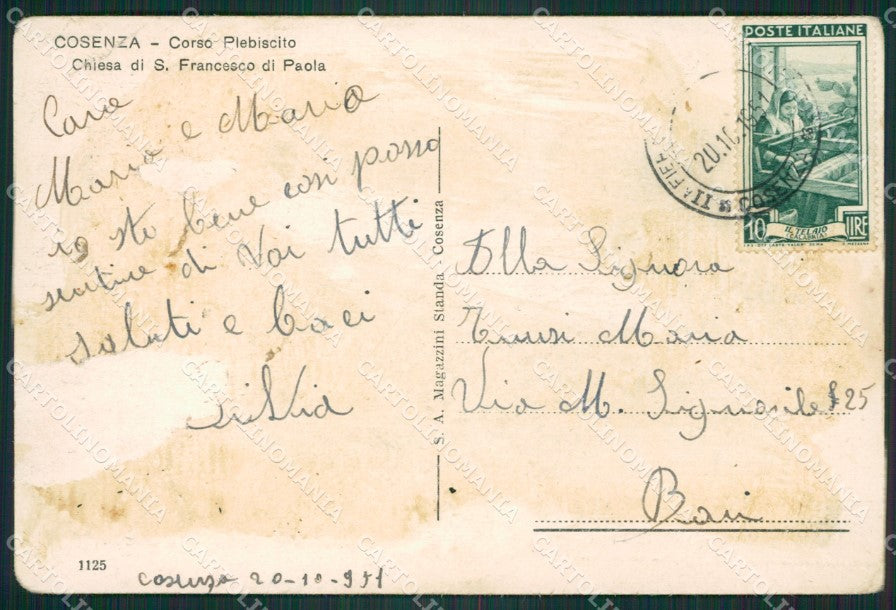 COSENZA - Corso Plebiscito
Chiesa di S. Francesco di Paola
Care
Maria e Maria
io sto bene così posso
sentire di Voi tutti
saluti e baci
Silvia
S. A. Magazzini Standa - Cosenza
POSTE ITALIANE
10 LIRE
IL TELAIO
20.10.1951
COSENZA
Alla Signora
Maria
Via M. Signorile 25
Bari
1125
Cosenza 20-10-951
CARTOLINOMANIA